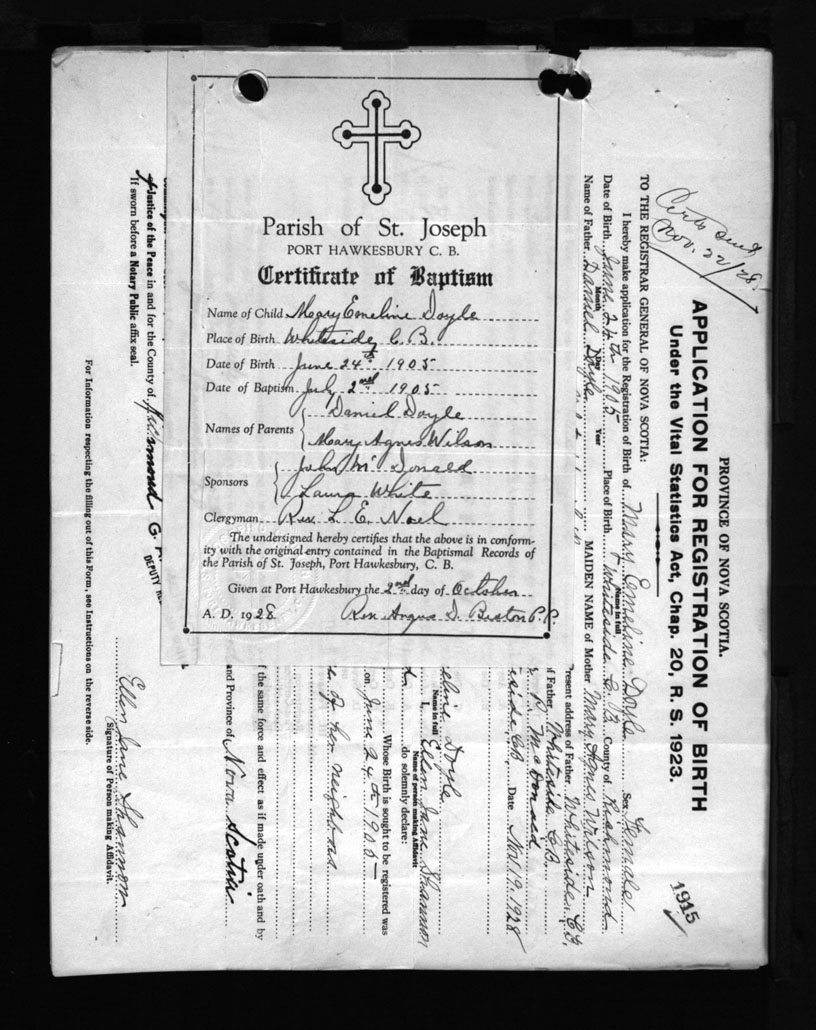 Parish of St. Joseph
PORT HAWKESBURY C. B.
Certificate of Baptism
Name of Child Mary Emeline Doyle
Place of Birth Whiteside, C.B.
Date of Birth June 24th 1905
Date of Baptism July 2nd 1905
Names of Parents { Daniel Doyle
Mary Agnes Wilson
Sponsors { John McDonald
Laura White
Clergyman Rev. L. E. Noel
The undersigned hereby certifies that the above is in conform-
ity with the original entry contained in the Baptismal Records of
the Parish of St. Joseph, Port Hawkesbury, C. B.
Given at Port Hawkesbury the 2nd day of October
A. D. 1928 Rev. Angus D. Beaton P.P.
Certs sent
Nov. 22/28.
PROVINCE OF NOVA SCOTIA.
APPLICATION FOR REGISTRATION OF BIRTH
Under the Vital Statistics Act, Chap. 20, R. S. 1923.
1915
TO THE REGISTRAR GENERAL OF NOVA SCOTIA:
I hereby make application for the Registration of Birth of Mary Emeline Doyle Sex Female
Name in full
Date of Birth June 24th 1905 Place of Birth Whiteside C. B. County of Richmond
Month Day Year
Name of Father Daniel Doyle MAIDEN NAME of Mother Mary Agnes Wilson
resent address of Father Whiteside, C.B.
f Father Whiteside C.B.
McDonald
side, CB Date Nov 19. 1928
eline Doyle
Name in full
I, Ellen Jane Shannon
Name of person making Affidavit
do solemnly declare:
Whose Birth is sought to be registered was
on June 24th 1905
of her neighbors
f the same force and effect as if made under oath and by
and Province of Nova Scotia
Ellen Jane Shannon
Signature of Person making Affidavit.
Justice of the Peace in and for the County of Richmond G.
DEPUTY
If sworn before a Notary Public affix seal.
For Information respecting the filling out of this Form, see Instructions on the reverse side.